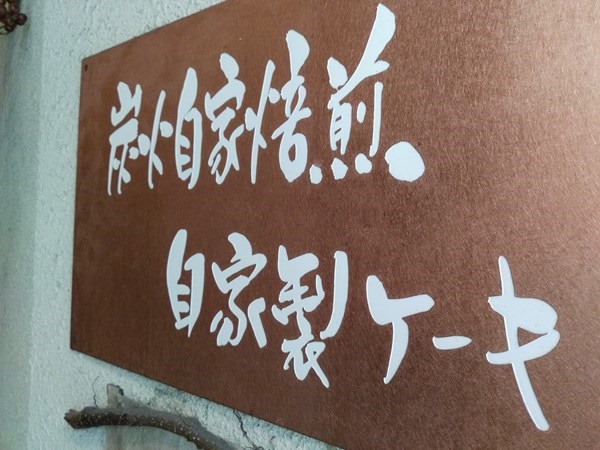 炭火自家焙煎。
自家製ケーキ